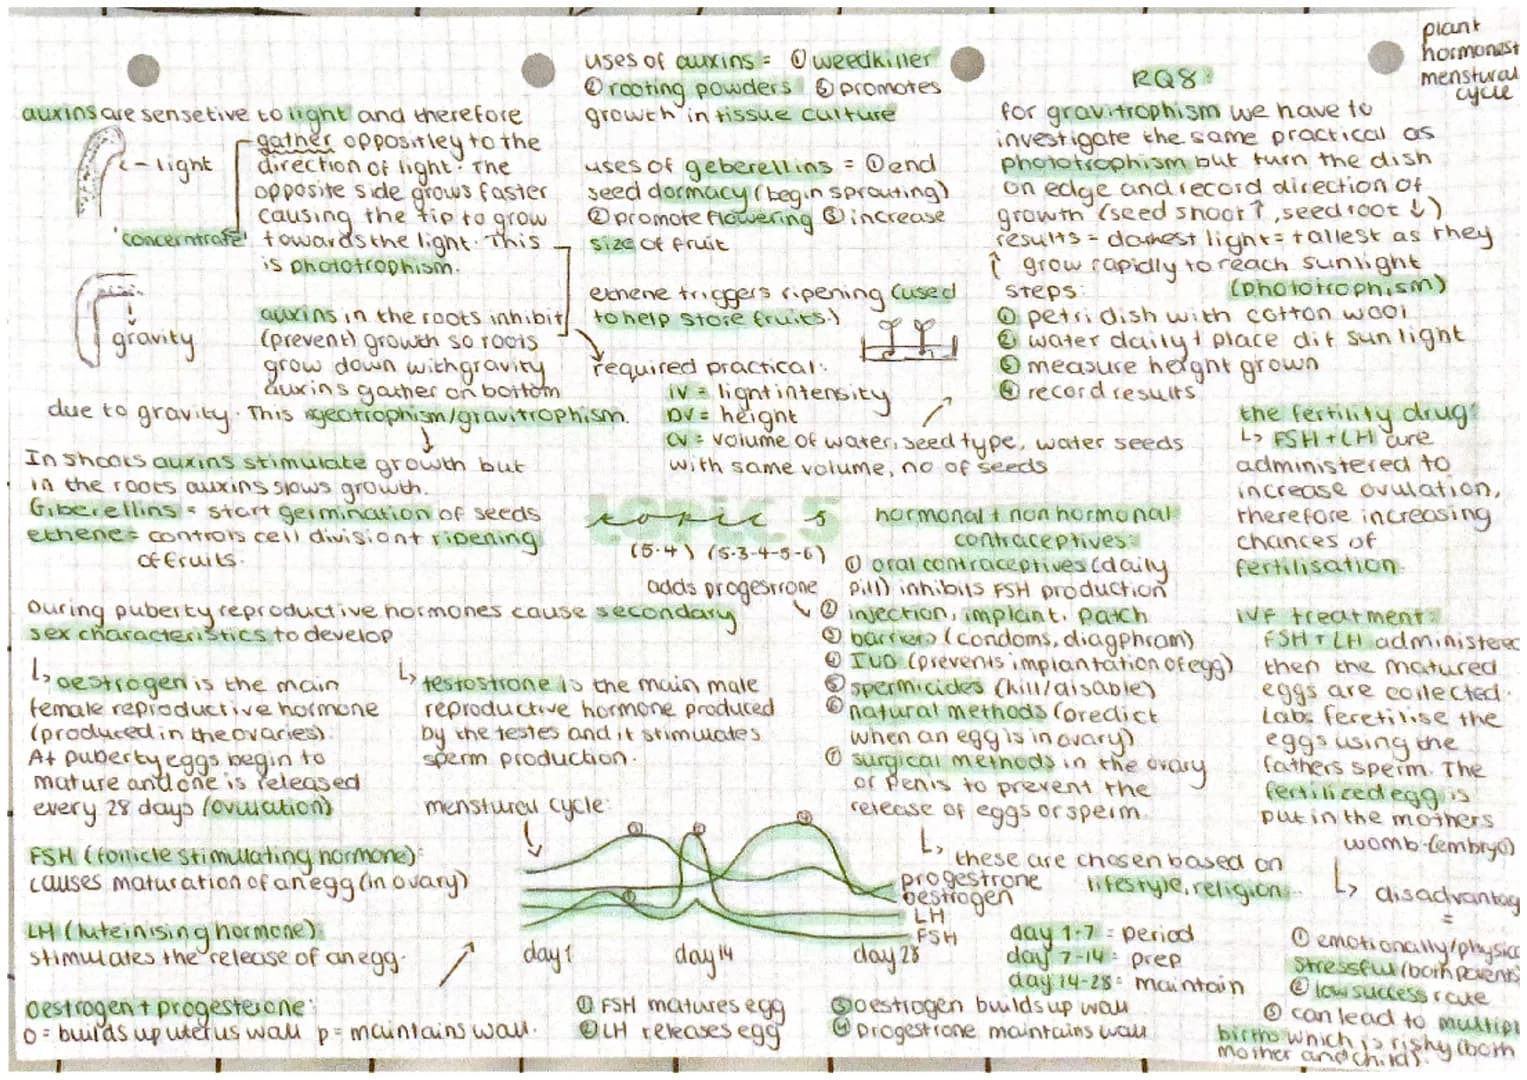 plant
hormones+
menstural
cycle
auxins are sensetive to light and therefore
gather oppositley to the
direction of light. The
opposite side grows faster
causing the tip to grow
towards the light. This
is phototrophism.
light
'concerntrate'
gravity
auxins in the roots inhibit
(prevent) growth so roots
grow down with gravity
auxins gather on bottom
due to gravity. This is geotrophism/gravitrophism.
In shoots auxins stimulate growth but
in the roots auxins slows growth.
Giberellins = start germination of seeds
ethene = controls cell division + ripening
of fruits.
uses of auxins = ① weedkiller
② rooting powders ③ promotes
growth in tissue culture
uses of geberellins = ① end
seed dormacy (begin sprouting)
② promote flowering ③ increase
size of fruit
ethene triggers ripening (used
to help store fruits.)
required practical:
IV = light intensity
DV = height
CV = volume of water, seed type, water seeds
with same volume, no of seeds
RQ8:
for gravitrophism we have to
investigate the same practical as
phototrophism but turn the dish
on edge and record direction of
growth (seed shoot ↑, seed root ↓)
results = darkest light = tallest as they
grow rapidly to reach sunlight
(phototrophism)
steps:
① petri dish with cotton wool
② water daily + place dif sunlight
③ measure height grown
④ record results
topic 5
(5.4) (5.3-4-5-6)
During puberty reproductive hormones cause secondary
sex characteristics to develop
↳ oestrogen is the main
female reproductive hormone
(produced in the ovaries).
At puberty eggs begin to
mature and one is released
every 28 days (ovulation)
↳ testostrone is the main male
reproductive hormone produced
by the testes and it stimulates
sperm production.
FSH (follicle stimulating hormone):
causes maturation of an egg (in ovary)
LH (luteinising hormone):
stimulates the release of an egg.
oestrogen + progesterone:
o = builds up uterus wall p = maintains wall.
menstural cycle:
progestrone
oestrogen
LH
FSH
day 1 day 14 day 28
① FSH matures egg
② LH releases egg
③ oestrogen builds up wall
④ progestrone maintains wall
day 1-7 = period
day 7-14 = prep
day 14-28 = maintain
hormonal + non hormonal
contraceptives:
① oral contraceptives (daily
pill) inhibits FSH production
adds progestrone
② injection, implant, patch
③ barriers (condoms, diagphram)
④ IUD (prevents implantation of egg)
⑤ spermicides (kill/disable)
⑥ natural methods (predict
when an egg is in ovary)
⑦ surgical methods in the ovary
or penis to prevent the
release of eggs or sperm.
↳ these are chosen based on
lifestyle, religion
the fertility drug:
↳ FSH + LH are
administered to
increase ovulation,
therefore increasing
chances of
fertilisation.
IVF treatment:
FSH + LH administere
then the matured
eggs are collected.
Labs feretilise the
eggs using the
fathers sperm. The
fertilized egg is
put in the mothers
womb. (embryo)
↳ disadvantag
=
① emotionally/physica
stressful (both parents
② low success rate
③ can lead to multipl
births which is risky (both
mother and child).